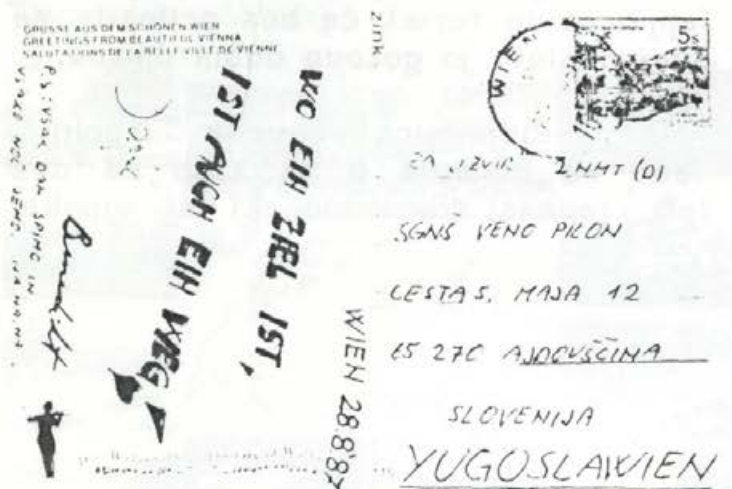 GRÜSSE AUS DEM SCHÖNEN WIEN
GREETINGS FROM BEAUTIFUL VIENNA
SALUTATIONS DE LA BELLE VILLE DE VIENNE
WO EIN ZIEL IST,
IST AUCH EIN WEG
WIEN 28.8.'87
P.S. VSAK DAN SPIMO IN
VSAKO NOČ
WIEN
5s
SGNS VENO PILON
CESTA 5. MAJA 12
65 270 AJDOVŠČINA
SLOVENIJA
YUGOSLAWIEN